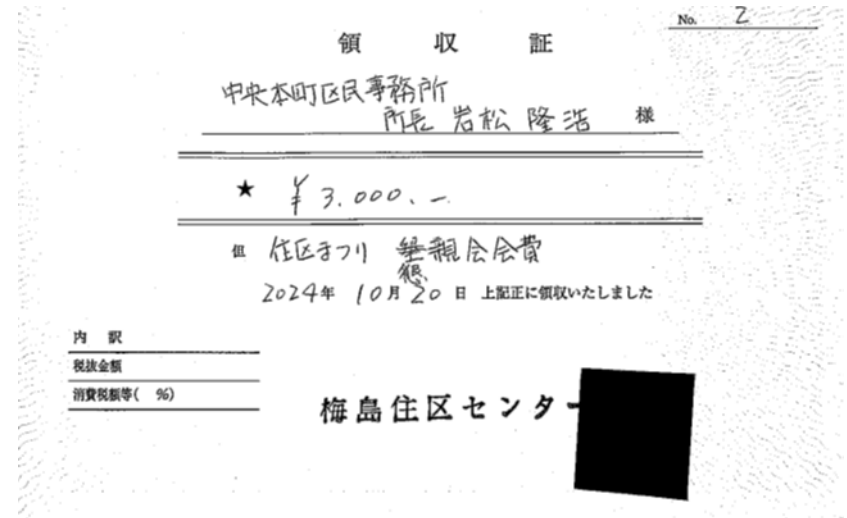 No. 2
領 収 証
中央本町区民事務所
所長 岩松 隆浩 様
★ ¥3.000.-
但 住区まつり 懇親会会費
2024年 10月 20日 上記正に領収いたしました
内 訳
税抜金額
消費税額等( %)
梅島住区センター